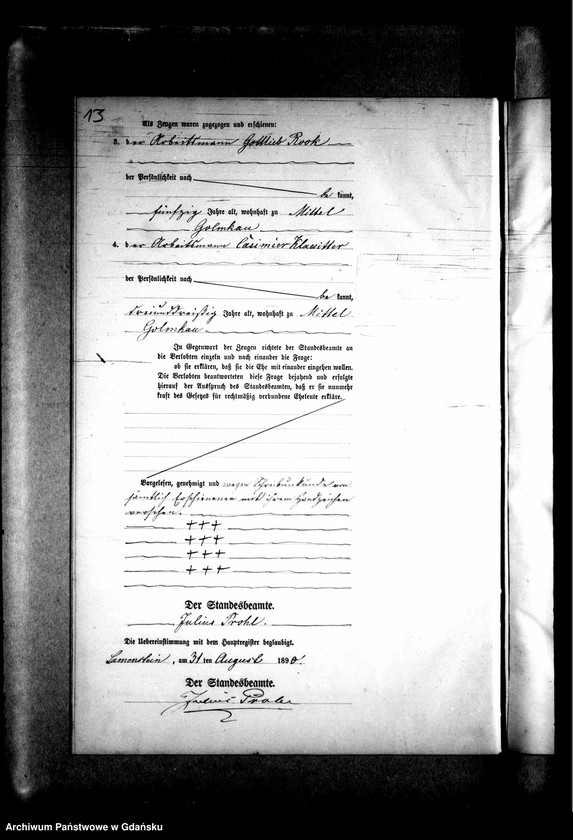 13
Als Zeugen waren zugezogen und erschienen:
3. der Arbeitsmann Gottlieb Rook
der Persönlichkeit nach
be kannt,
fünfzig Jahre alt, wohnhaft zu Mittel
Golmkau
4. der Arbeitsmann Casimier Klawitter
der Persönlichkeit nach
be kannt,
dreiunddreißig Jahre alt, wohnhaft zu Mittel
Golmkau.
In Gegenwart der Zeugen richtete der Standesbeamte an
die Verlobten einzeln und nach einander die Frage:
ob sie erklären, daß sie die Ehe mit einander eingehen wollen.
Die Verlobten beantworteten diese Frage bejahend und erfolgte
hierauf der Ausspruch des Standesbeamten, daß er sie nunmehr
kraft des Gesetzes für rechtmäßig verbundene Eheleute erkläre.
Vorgelesen, genehmigt und wegen Schreibunkunde von
sämtlich Erschienenen mit ihrem Handzeichen
versehen.
+++
+++
+++
+++
Der Standesbeamte.
Julius Prohl.
Die Uebereinstimmung mit dem Hauptregister beglaubigt.
Lamenstein, am 31 ten August 1890.
Der Standesbeamte.
Julius Prohl
Archiwum Państwowe w Gdańsku